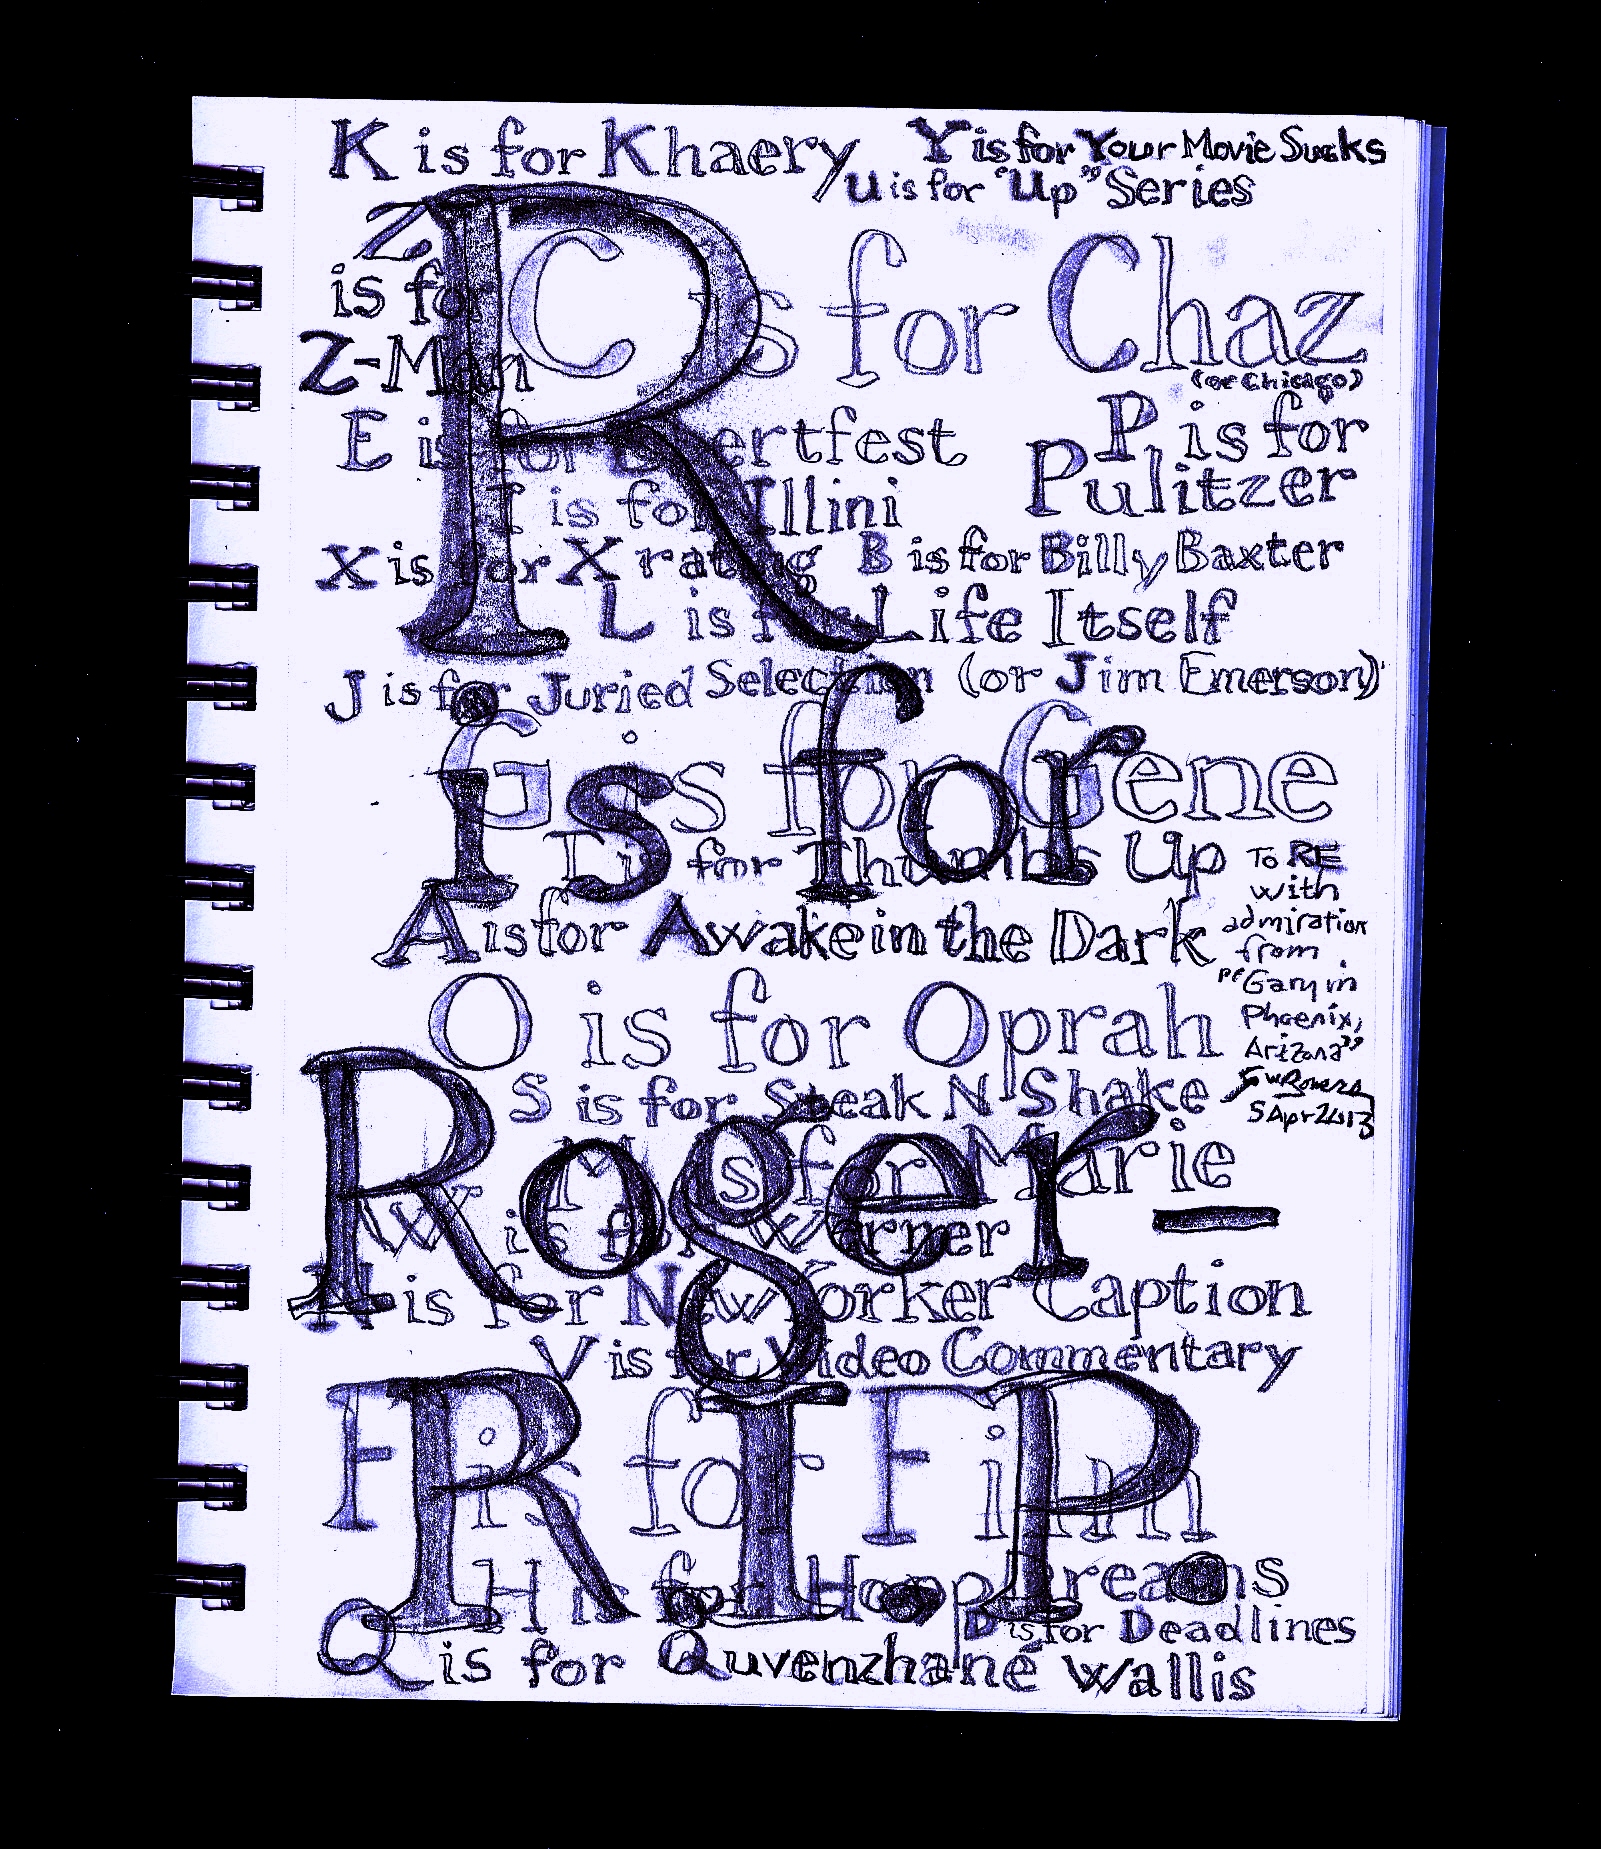 K is for Khaery
Y is for Your Movie Sucks
U is for "Up" Series
Z
is for
Z-Man
C is for Chaz
(or Chicago)
E is for Ebertfest
P is for
Pulitzer
I is for Illini
X is for X rating
B is for Billy Baxter
L is for Life Itself
J is for Juried Selection (or Jim Emerson)
G is for Gene
T is for Thumbs Up
A is for Awake in the Dark
To RE
with
admiration
from
"Gary in
Phoenix,
Arizona"
5 Apr 2013
O is for Oprah
S is for Steak N Shake
M is for Marie
W is for Werner
N is for New Yorker Caption
V is for Video Commentary
F is for Film
H is for Hoop Dreams
D is for Deadlines
Q is for Quvenzhané Wallis
R
is for
Roger–
R.I.P.